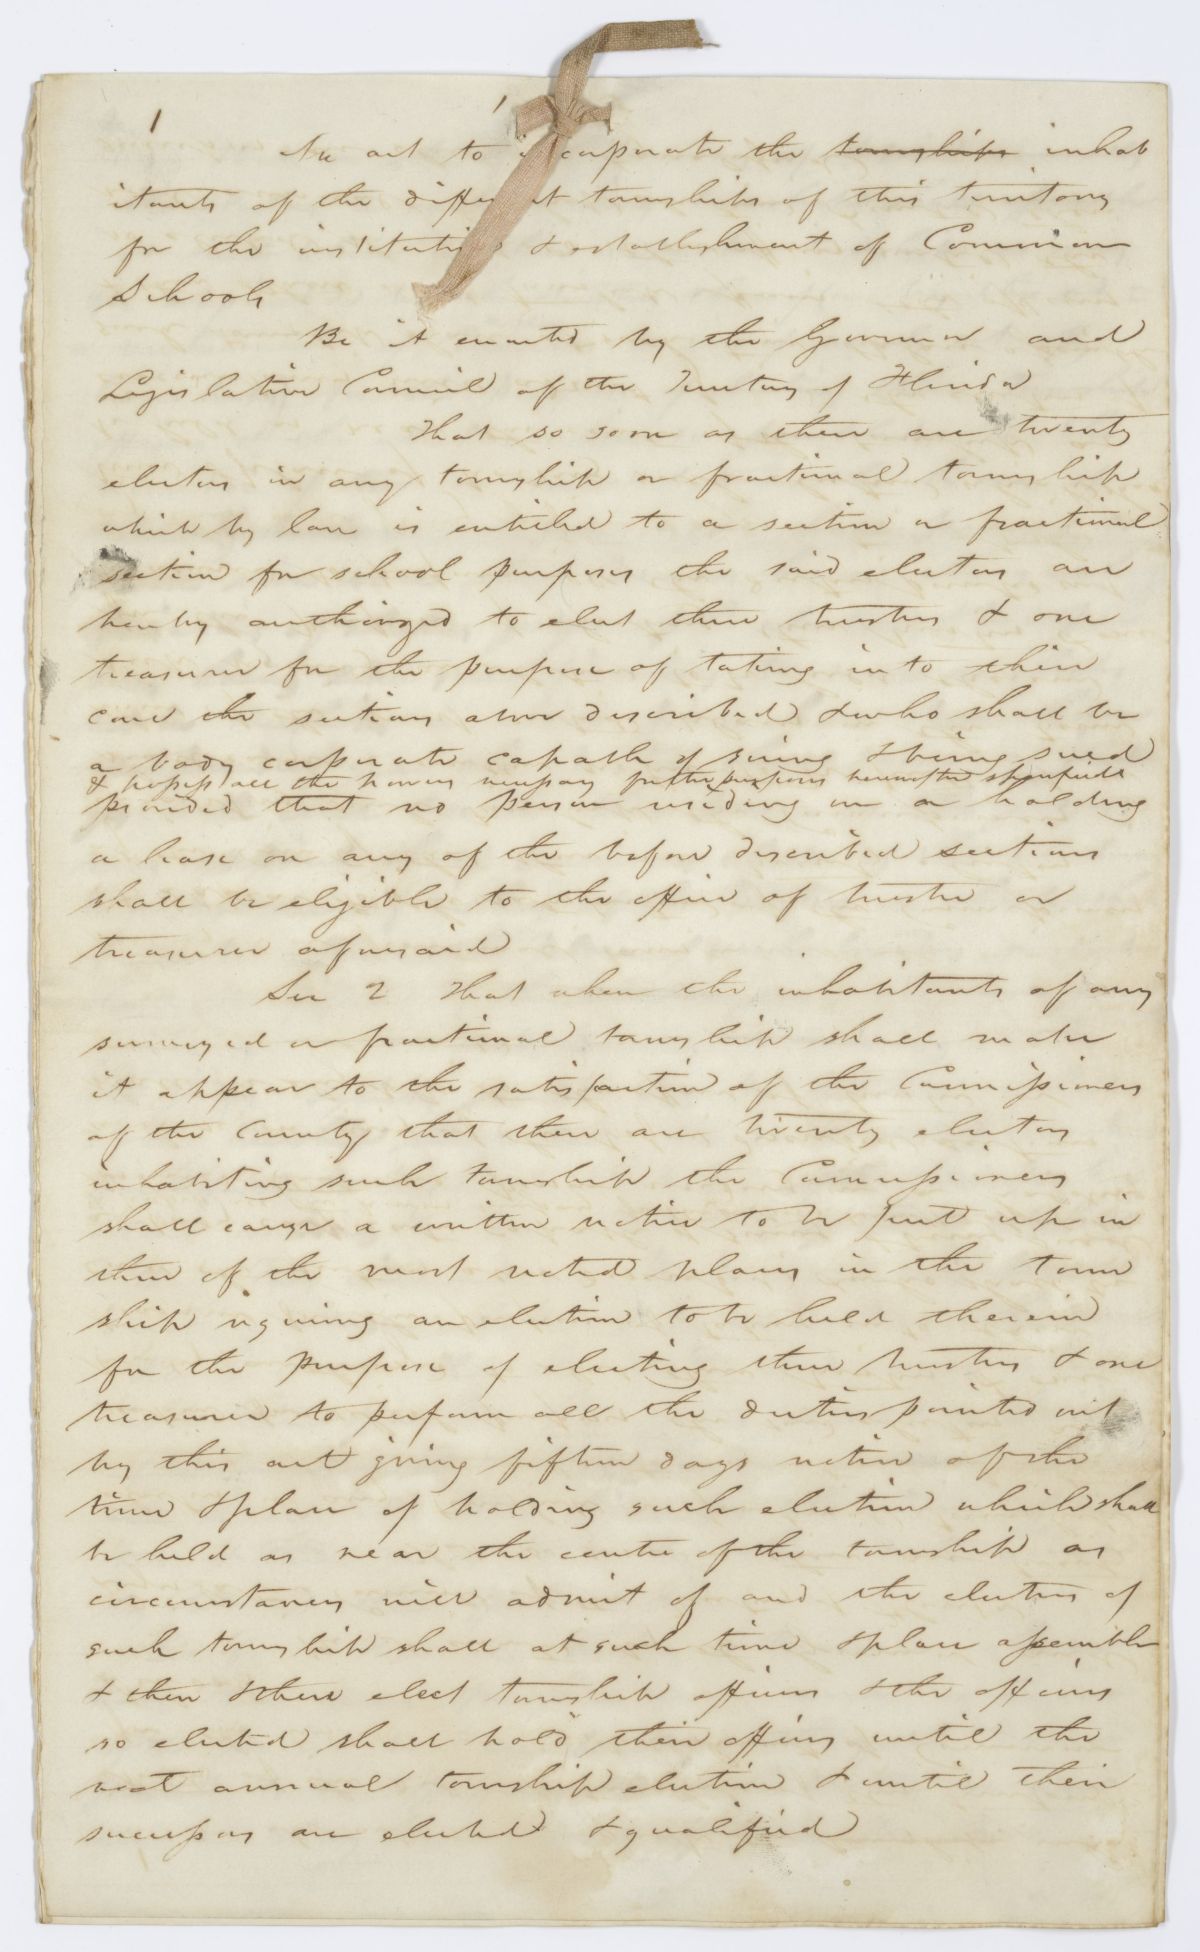 1
An act to incorporate the townships inhab
itants of the different townships of this territory
for the institution & establishment of Common
Schools
Be it enacted by the Governor and
Legislative Council of the Territory of Florida
That so soon as there are twenty
electors in any township or fractional township
which by law is entitled to a section or fractional
section for school purposes the said electors are
hereby authorized to elect three trustees & one
treasurer for the purpose of taking into their
care the sections above described & who shall be
a body corporate capable of suing & being sued
& possess all the powers necessary for the purposes hereinafter specified
provided that no person residing on or holding
a lease on any of the before described sections
shall be eligible to the office of trustee or
treasurer aforesaid
Sec 2 That when the inhabitants of any
surveyed or fractional township shall make
it appear to the satisfaction of the Commissioners
of the County that there are twenty electors
inhabiting such township the Commissioners
shall cause a written notice to be put up in
three of the most noted places in the town
ship requiring an election to be held therein
for the purpose of electing three trustees & one
treasurer to perform all the duties pointed out
by this act giving fifteen days notice of the
time & place of holding such election which shall
be held as near the centre of the township as
circumstances will admit of and the electors of
such township shall at such time & place assemble
& then & there elect township officers & the officers
so elected shall hold their offices until the
next annual township election & until their
successors are elected & qualified